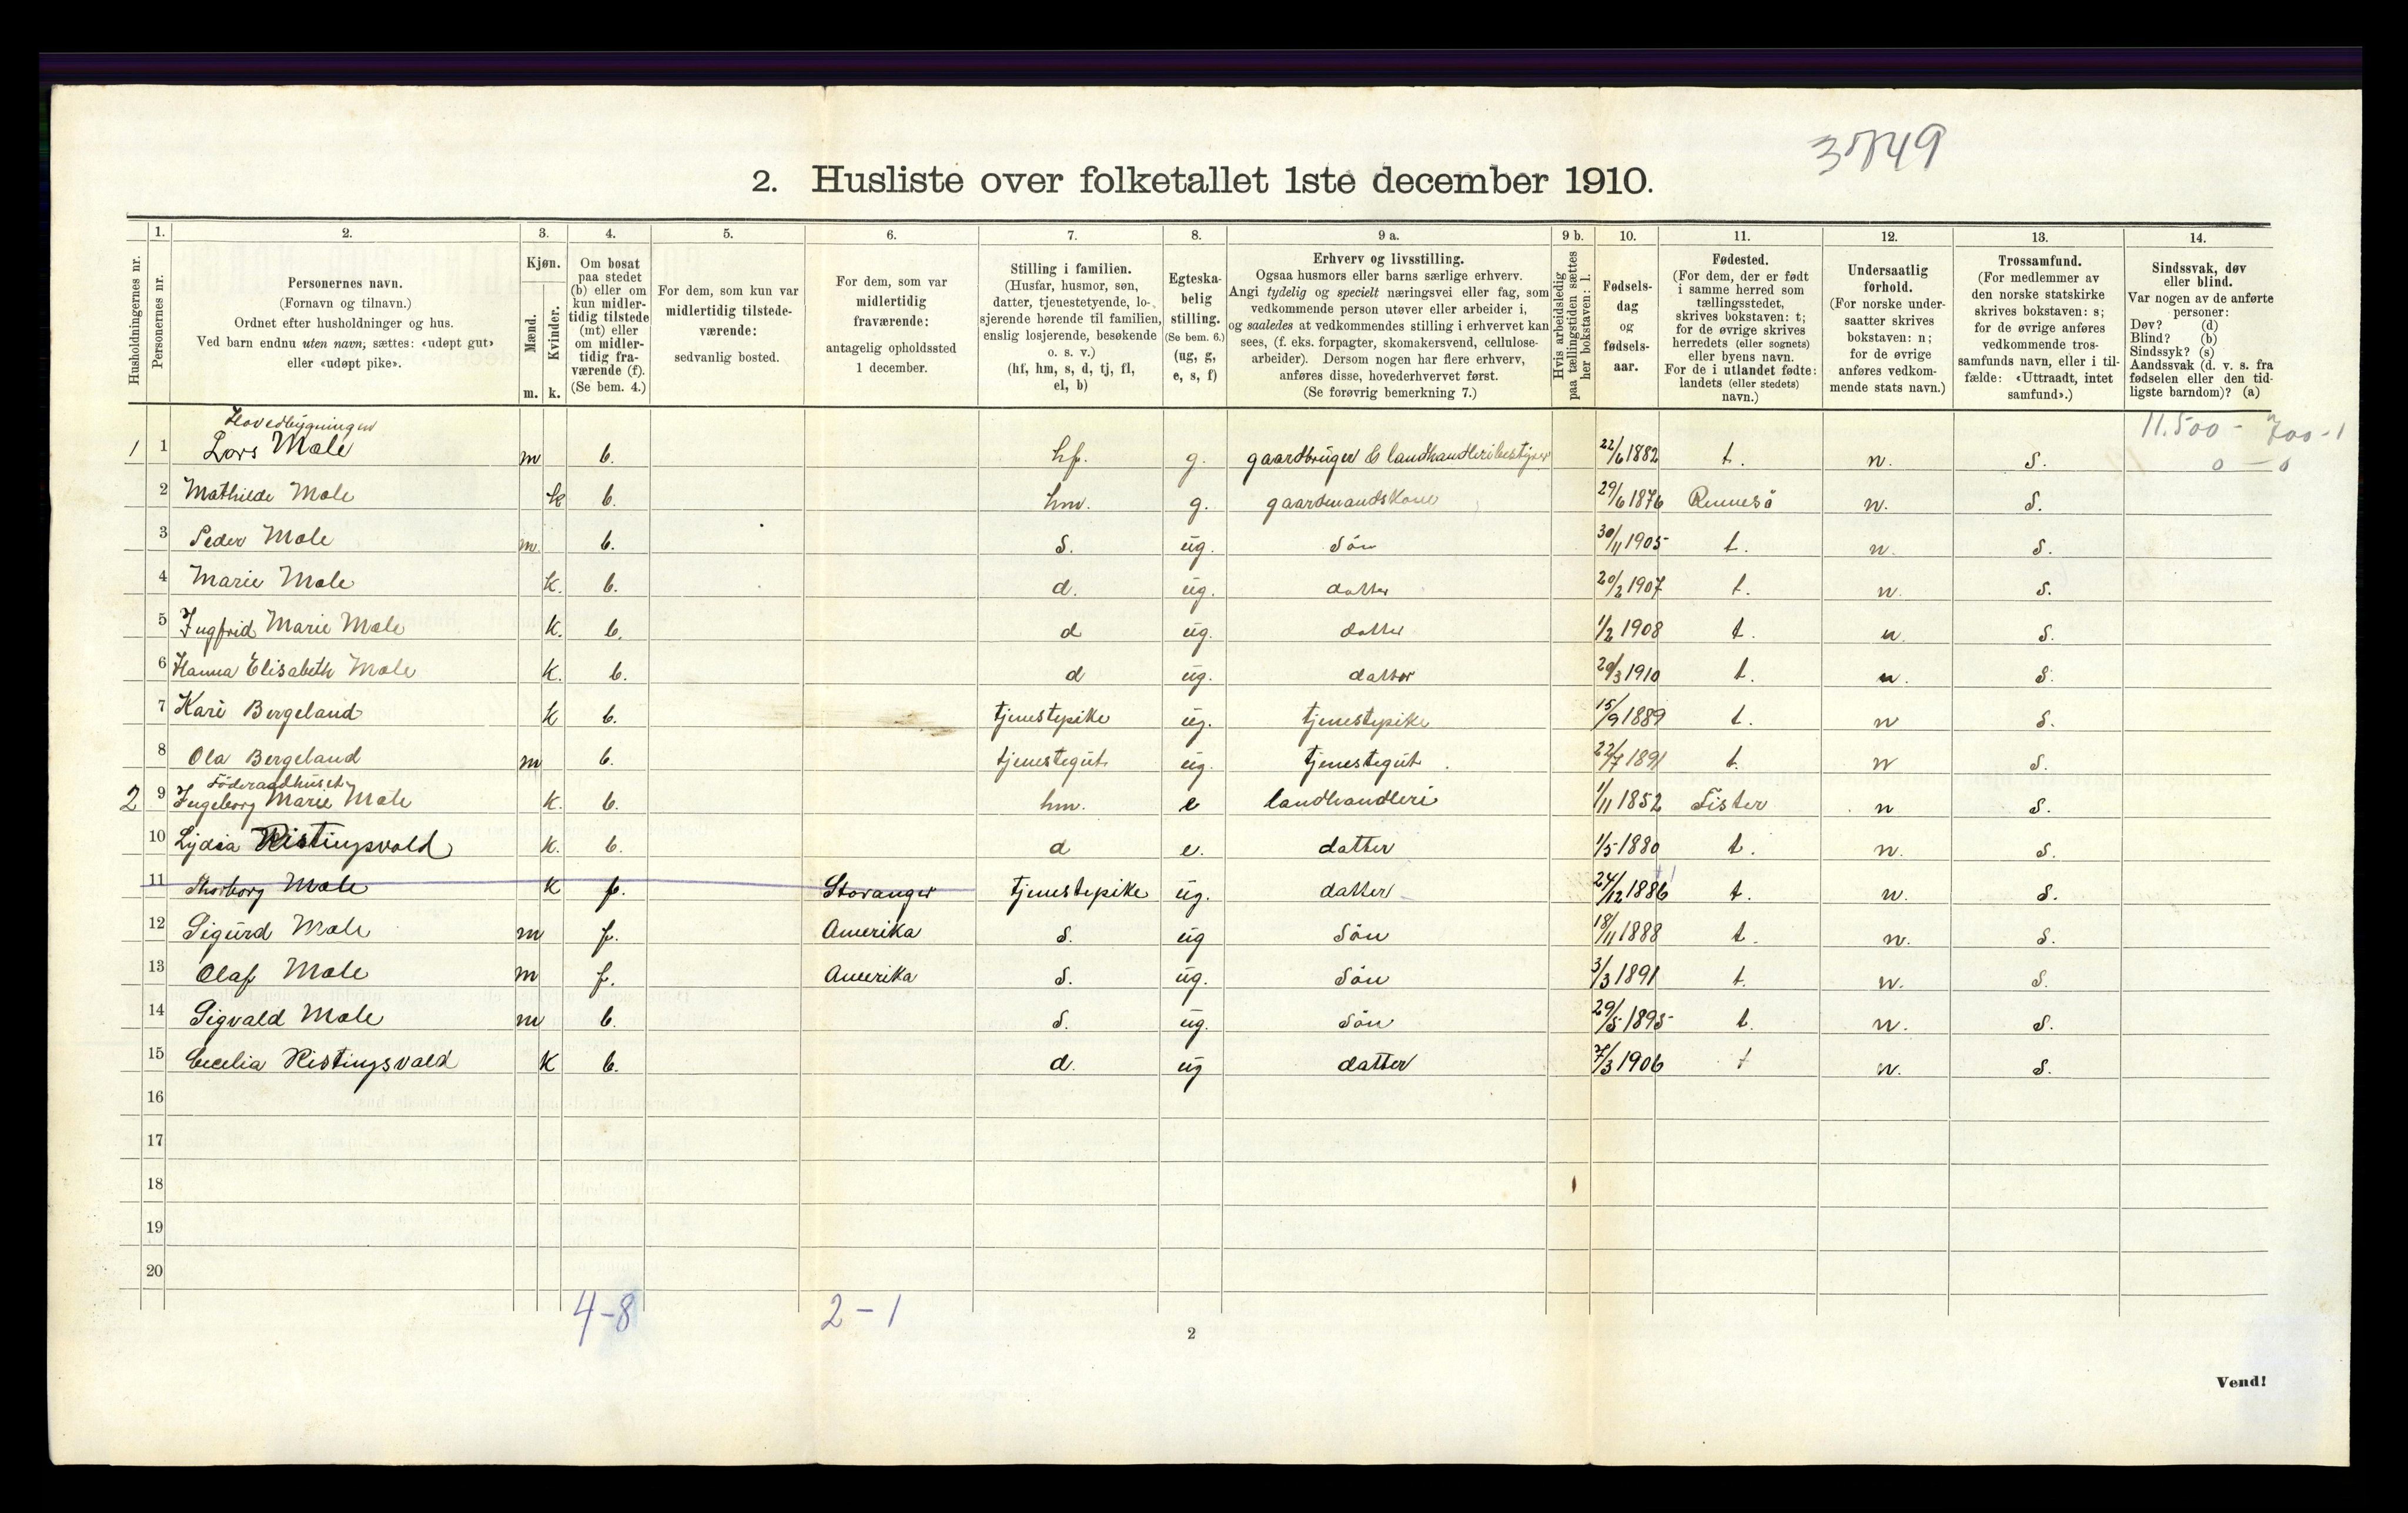 2. Husliste over folketallet 1ste december 1910.
Husholdningernes nr.
1. Personernes nr.
2. Personernes navn. (Fornavn og tilnavn.) Ordnet efter husholdninger og hus. Ved barn endnu uten navn, sættes: «udøpt gut» eller «udøpt pike».
3. Kjøn. Mænd. m. Kvinder. k.
4. Om bosat paa stedet (b) eller om kun midlertidig tilstede (mt) eller om midlertidig fraværende (f). (Se bem. 4.)
5. For dem, som kun var midlertidig tilstedeværende: sedvanlig bosted.
6. For dem, som var midlertidig fraværende: antagelig opholdssted 1 december.
7. Stilling i familien. (Husfar, husmor, søn, datter, tjenestetyende, losjerende hørende til familien, enslig losjerende, besøkende o. s. v.) (hf, hm, s, d, tj, fl, el, b)
8. Egteskabelig stilling. (Se bem. 6.) (ug, g, e, s, f)
9 a. Erhverv og livsstilling. Ogsaa husmors eller barns særlige erhverv. Angi tydelig og specielt næringsvei eller fag, som vedkommende person utøver eller arbeider i, og saaledes at vedkommendes stilling i erhvervet kan sees, (f. eks. forpagter, skomakersvend, cellulosearbeider). Dersom nogen har flere erhverv, anføres disse, hovederhvervet først. (Se forøvrig bemerkning 7.)
9 b. Hvis arbeidsledig paa tællingstiden sættes her bokstaven: l.
10. Fødselsdag og fødselsaar.
11. Fødested. (For dem, der er født i samme herred som tællingsstedet, skrives bokstaven: t; for de øvrige skrives herredets (eller sognets) eller byens navn. For de i utlandet fødte: landets (eller stedets) navn.)
12. Undersaatlig forhold. (For norske undersaatter skrives bokstaven: n; for de øvrige anføres vedkommende stats navn.)
13. Trossamfund. (For medlemmer av den norske statskirke skrives bokstaven: s; for de øvrige anføres vedkommende trossamfunds navn, eller i tilfælde: «Uttraadt, intet samfund».)
14. Sindssvak, døv eller blind. Var nogen av de anførte personer: Døv? (d) Blind? (b) Sindssyk? (s) Aandssvak (d. v. s. fra fødselen eller den tidligste barndom)? (a)
Hovedbygningen
11.500 - 700 - 1
1 1 Lars Male m b. hf. g. gaardbruger & landhandleribestyrer 22/6 1882 t. n. s. 0 - 0
2 Mathilde Male k b. hm. g. gaardmandskone 29/6 1876 Rennesö n. s.
3 Peder Male m. b. s. ug. sön 30/11 1905 t. n. s.
4 Marie Male k. b. d. ug. datter 20/2 1907 t. n. s.
5 Ingfrid Marie Male k. b. d ug. datter 1/2 1908 t. n. s.
6 Hanna Elisabeth Male k. b. d ug. datter 20/3 1910 t. n. s.
7 Kari Bergeland k b. tjenestepike ug. tjenestepike 15/9 1889 t. n s.
8 Ola Bergeland m b. tjenestegut ug. tjenestegut 22/7 1891 t. n s.
Föderaadhuset
2 9 Ingeborg Marie Male k. b. hm. e landhandleri 1/11 1852 Fister n s.
10 Lydia Ristingsvold k. b. d e. datter 1/5 1880 t. n. s.
11 Thorborg Male k f. Stavanger tjenestepike ug. datter 24/12 1886 t. n. s.
12 Sigurd Male m f. Amerika s. ug sön 18/11 1888 t. n. s.
13 Olaf Male m f. Amerika s. ug. sön 3/3 1891 t. n. s.
14 Sigvald Male m b. s. ug. sön 29/5 1895 t. n. s.
15 Cecelia Ristingsvald k b. d. ug datter 7/3 1906 t n. s.
16
17
18
19
20
4-8 2-1
2
Vend!